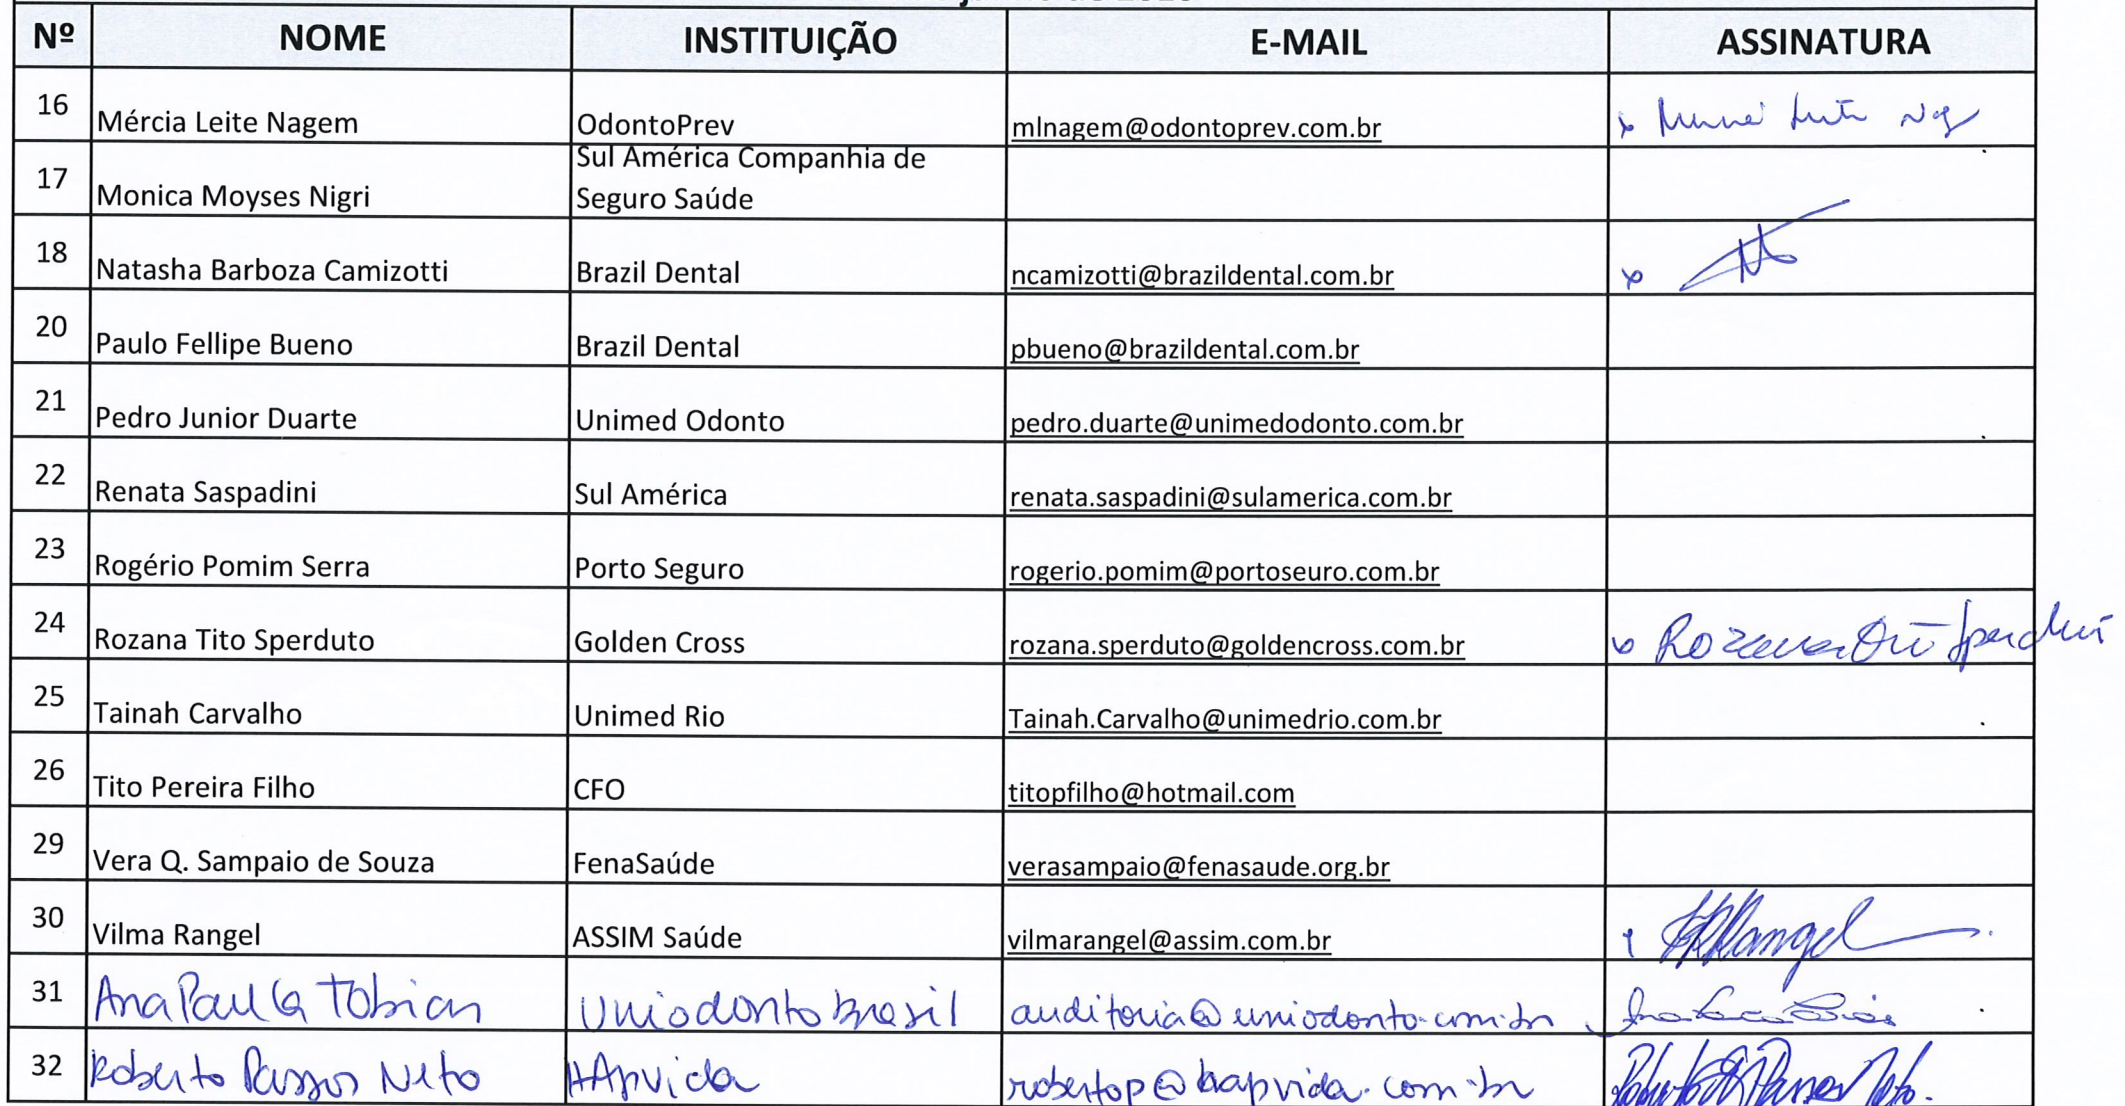 Nº NOME INSTITUIÇÃO E-MAIL ASSINATURA
16 Mércia Leite Nagem OdontoPrev mlnagem@odontoprev.com.br
17 Monica Moyses Nigri Sul América Companhia de
Seguro Saúde
18 Natasha Barboza Camizotti Brazil Dental ncamizotti@brazildental.com.br
20 Paulo Fellipe Bueno Brazil Dental pbueno@brazildental.com.br
21 Pedro Junior Duarte Unimed Odonto pedro.duarte@unimedodonto.com.br
22 Renata Saspadini Sul América renata.saspadini@sulamerica.com.br
23 Rogério Pomim Serra Porto Seguro rogerio.pomim@portoseuro.com.br
24 Rozana Tito Sperduto Golden Cross rozana.sperduto@goldencross.com.br Rozana Tito Sperduto
25 Tainah Carvalho Unimed Rio Tainah.Carvalho@unimedrio.com.br
26 Tito Pereira Filho CFO titopfilho@hotmail.com
29 Vera Q. Sampaio de Souza FenaSaúde verasampaio@fenasaude.org.br
30 Vilma Rangel ASSIM Saúde vilmarangel@assim.com.br
31 Ana Paula Tobias Uniodonto Brasil auditoria@uniodonto.com.br
32 Roberto Passos Neto HApvida robertop@hapvida.com.br